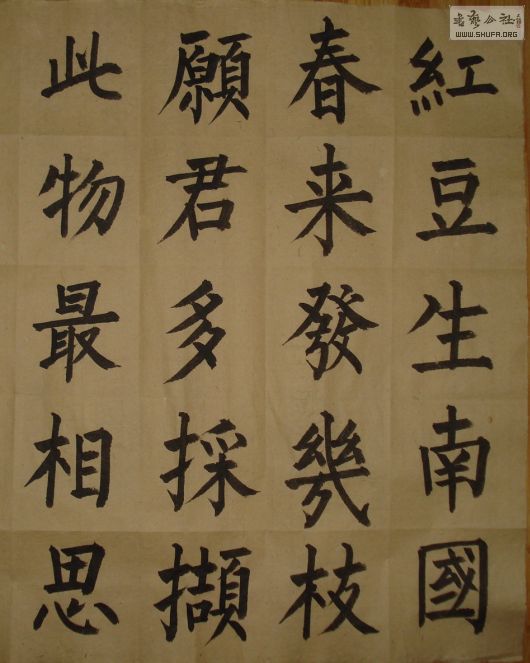 紅豆生南國
春来發幾枝
願君多採擷
此物最相思
書藝公社
WWW.SHUFA.ORG